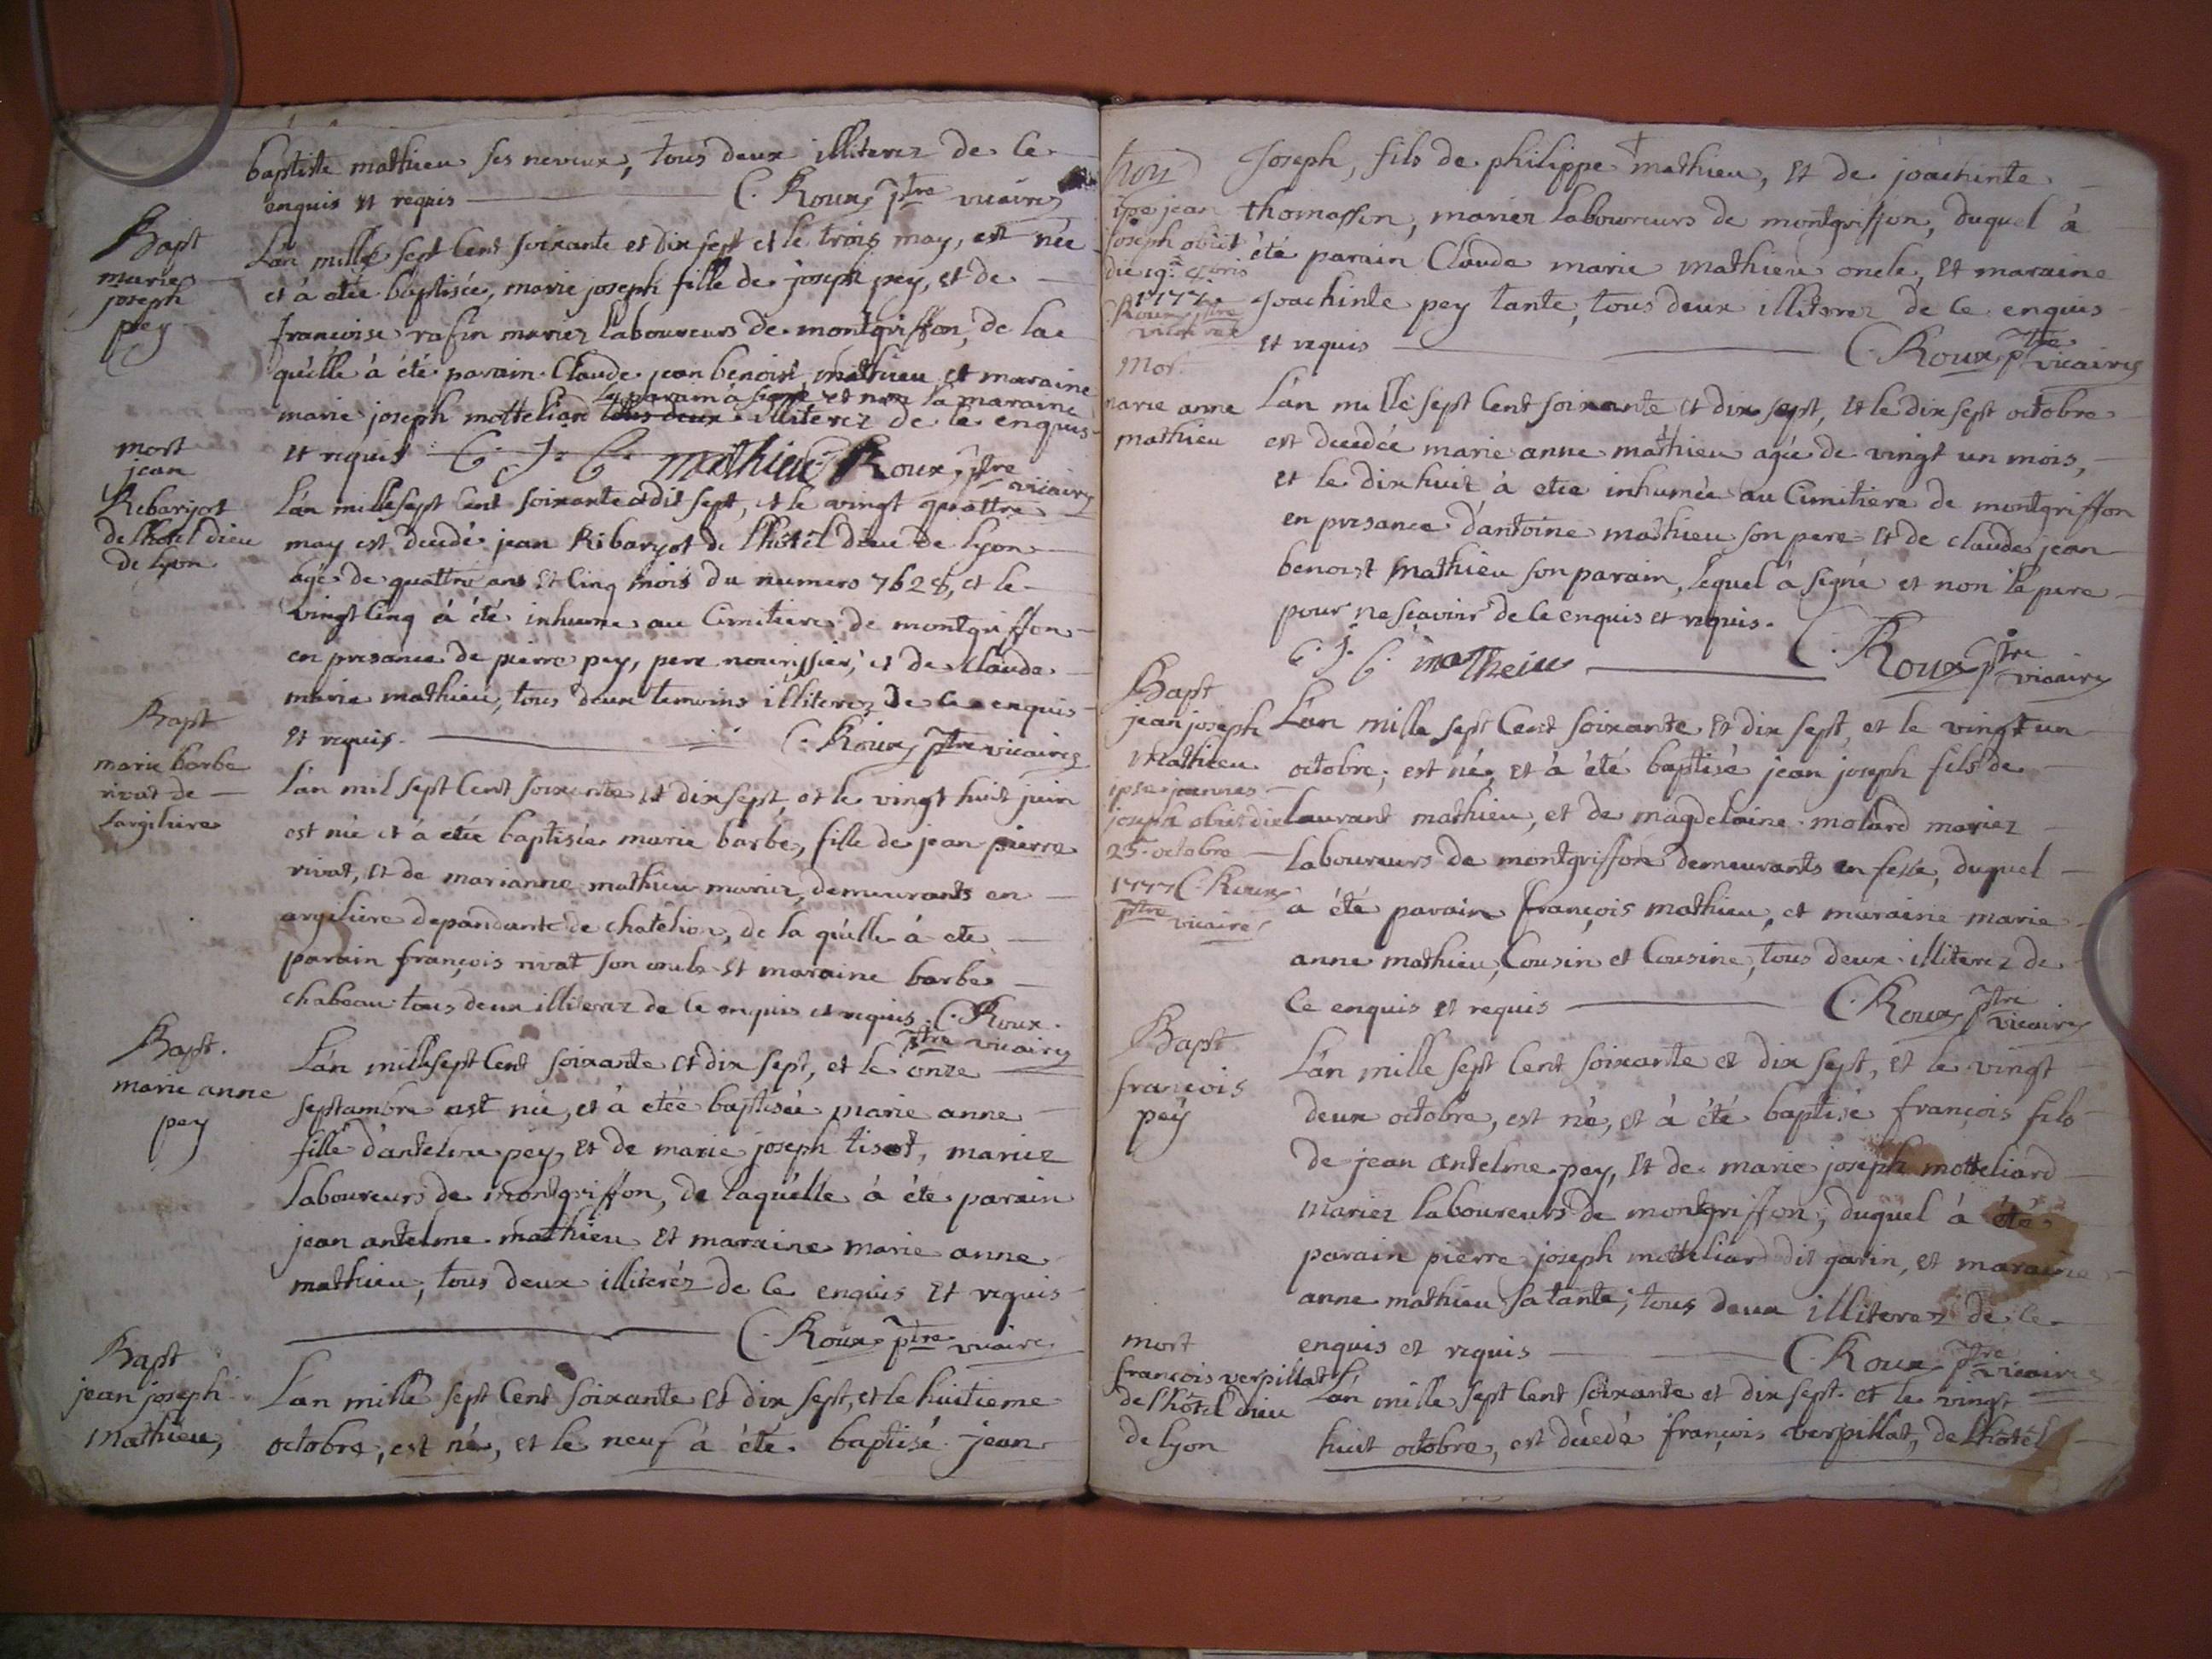 baptiste mathieu ses neveux, tous deux illiterez de ce
enquis et requis C. Roux ptre vicaire
Bapt
marie
joseph
pey
L'an mille sept Cent soixante et dix sept et le trois may, est née
et à etée baptisée, marie joseph fille de joseph pey, et de
françoise rafin mariez laboureurs de montgriffon, de la
quélle à été parain Claude jean benoist mathieu et maraine
le parain à signé et non la maraine
marie joseph motteliard tous deux illiterez de ce enquis
et requis C. J. B. mathieu C. Roux, ptre vicaire
mort
jean
Ribaryot
de lhotel dieu
de lyon
L'an mille sept Cent soixante et dit sept, et le vingt quattre
may est decedé jean Ribaryot de lhôtél dieu de lyon
agé de quattre ans et Cinq mois du numero 7628, et le
vingt Cinq à été inhume au Cimitiere de montgriffon
en presance de pierre pey, pere nourissier, et de claude
marie mathieu, tous deux temoins illiterez de ce enquis
et requis. C. Roux ptre vicaire
Bapt
marie barbe
rivat de
largiliere
L'an mil sept Cent soixante et dix sept, et le vingt huit juin
est née et à etée baptisée marie barbe, fille de jean pierre
rivat, et de marianne mathieu mariez, demeurants en
argeliere depandante de chatélion, de la quélle à ete
parain françois rivat son oncle et maraine barbe
chabeau tous deux illiterez de ce enquis et requis. C. Roux
ptre vicaire
Bapt.
marie anne
pey
L'an mille sept Cent soixante et dix sept, et le onze
septambre est née, et à etée baptisée marie anne
fille d'antelme pey, et de marie joseph tisot, mariez
laboureurs de montgriffon, de laquélle à éte parain
jean antelme mathieu et maraine marie anne
mathieu, tous deux illiteréz de ce enquis et requis
C. Roux ptre vicaire
Bapt
jean joseph
mathieu,
L'an mille sept Cent soixante et dix sept, et le huitieme
octobre, est né, et le neuf à été baptisé jean
ipse jean
joseph obiit
die 19a
1777
Roux ptre
vicaire
Joseph, fils de philippe mathieu, et de joachinte
thomasson, mariez laboureurs de montgriffon, duquel à
été parain Claude marie mathieu oncle, et maraine
Joachinte pey tante, tous deux illiterez de ce enquis
et requis C. Roux ptre vicaire
Mor.
marie anne
mathieu
L'an mille sept Cent soixante et dix sept, et le dix sept octobre
est decedée marie anne mathieu agée de vingt un mois,
et le dix huit à etée inhumée au Cimitiere de montgriffon
en presance d'antoine mathieu son pere et de claude jean
benoist mathieu son parain, lequel à signé et non le pere
pour ne sçavoir de ce enquis et requis.
C. J. B. matheiu C. Roux ptre vicaire
Bapt
jean joseph
Mathieu
ipse joannes
joseph obiit die
25. octobre
1777 C. Roux
ptre vicaire
L'an mille sept Cent soixante et dix sept, et le vingt un
octobre, est né, et à été baptisé jean joseph fils de
laurant mathieu, et de magdelaine molard mariez
laboureurs de montgriffon demeurants en fesse, duquel
à été parain françois mathieu, et maraine marie
anne mathieu, Cousin et Cousine, tous deux illiterez de
Ce enquis et requis C. Roux ptre vicaire
Bapt
françois
pey
L'an mille sept Cent soixante et dix sept, et le vingt
deux octobre, est né, et à été baptisé françois fils
de jean antelme pey, et de marie joseph motteliard
mariez laboureurs de montgriffon, duquel à été
parain pierre joseph motteliard dit garin, et maraine
anne mathieu sa tante, tous deux illiterez de ce
enquis et requis C. Roux ptre vicaire
mort
françois verpillat
de lhôtel dieu
de lyon
L'an mille sept Cent soixante et dix sept et le vingt
huit octobre, est décédé françois verpillat, de lhôtél